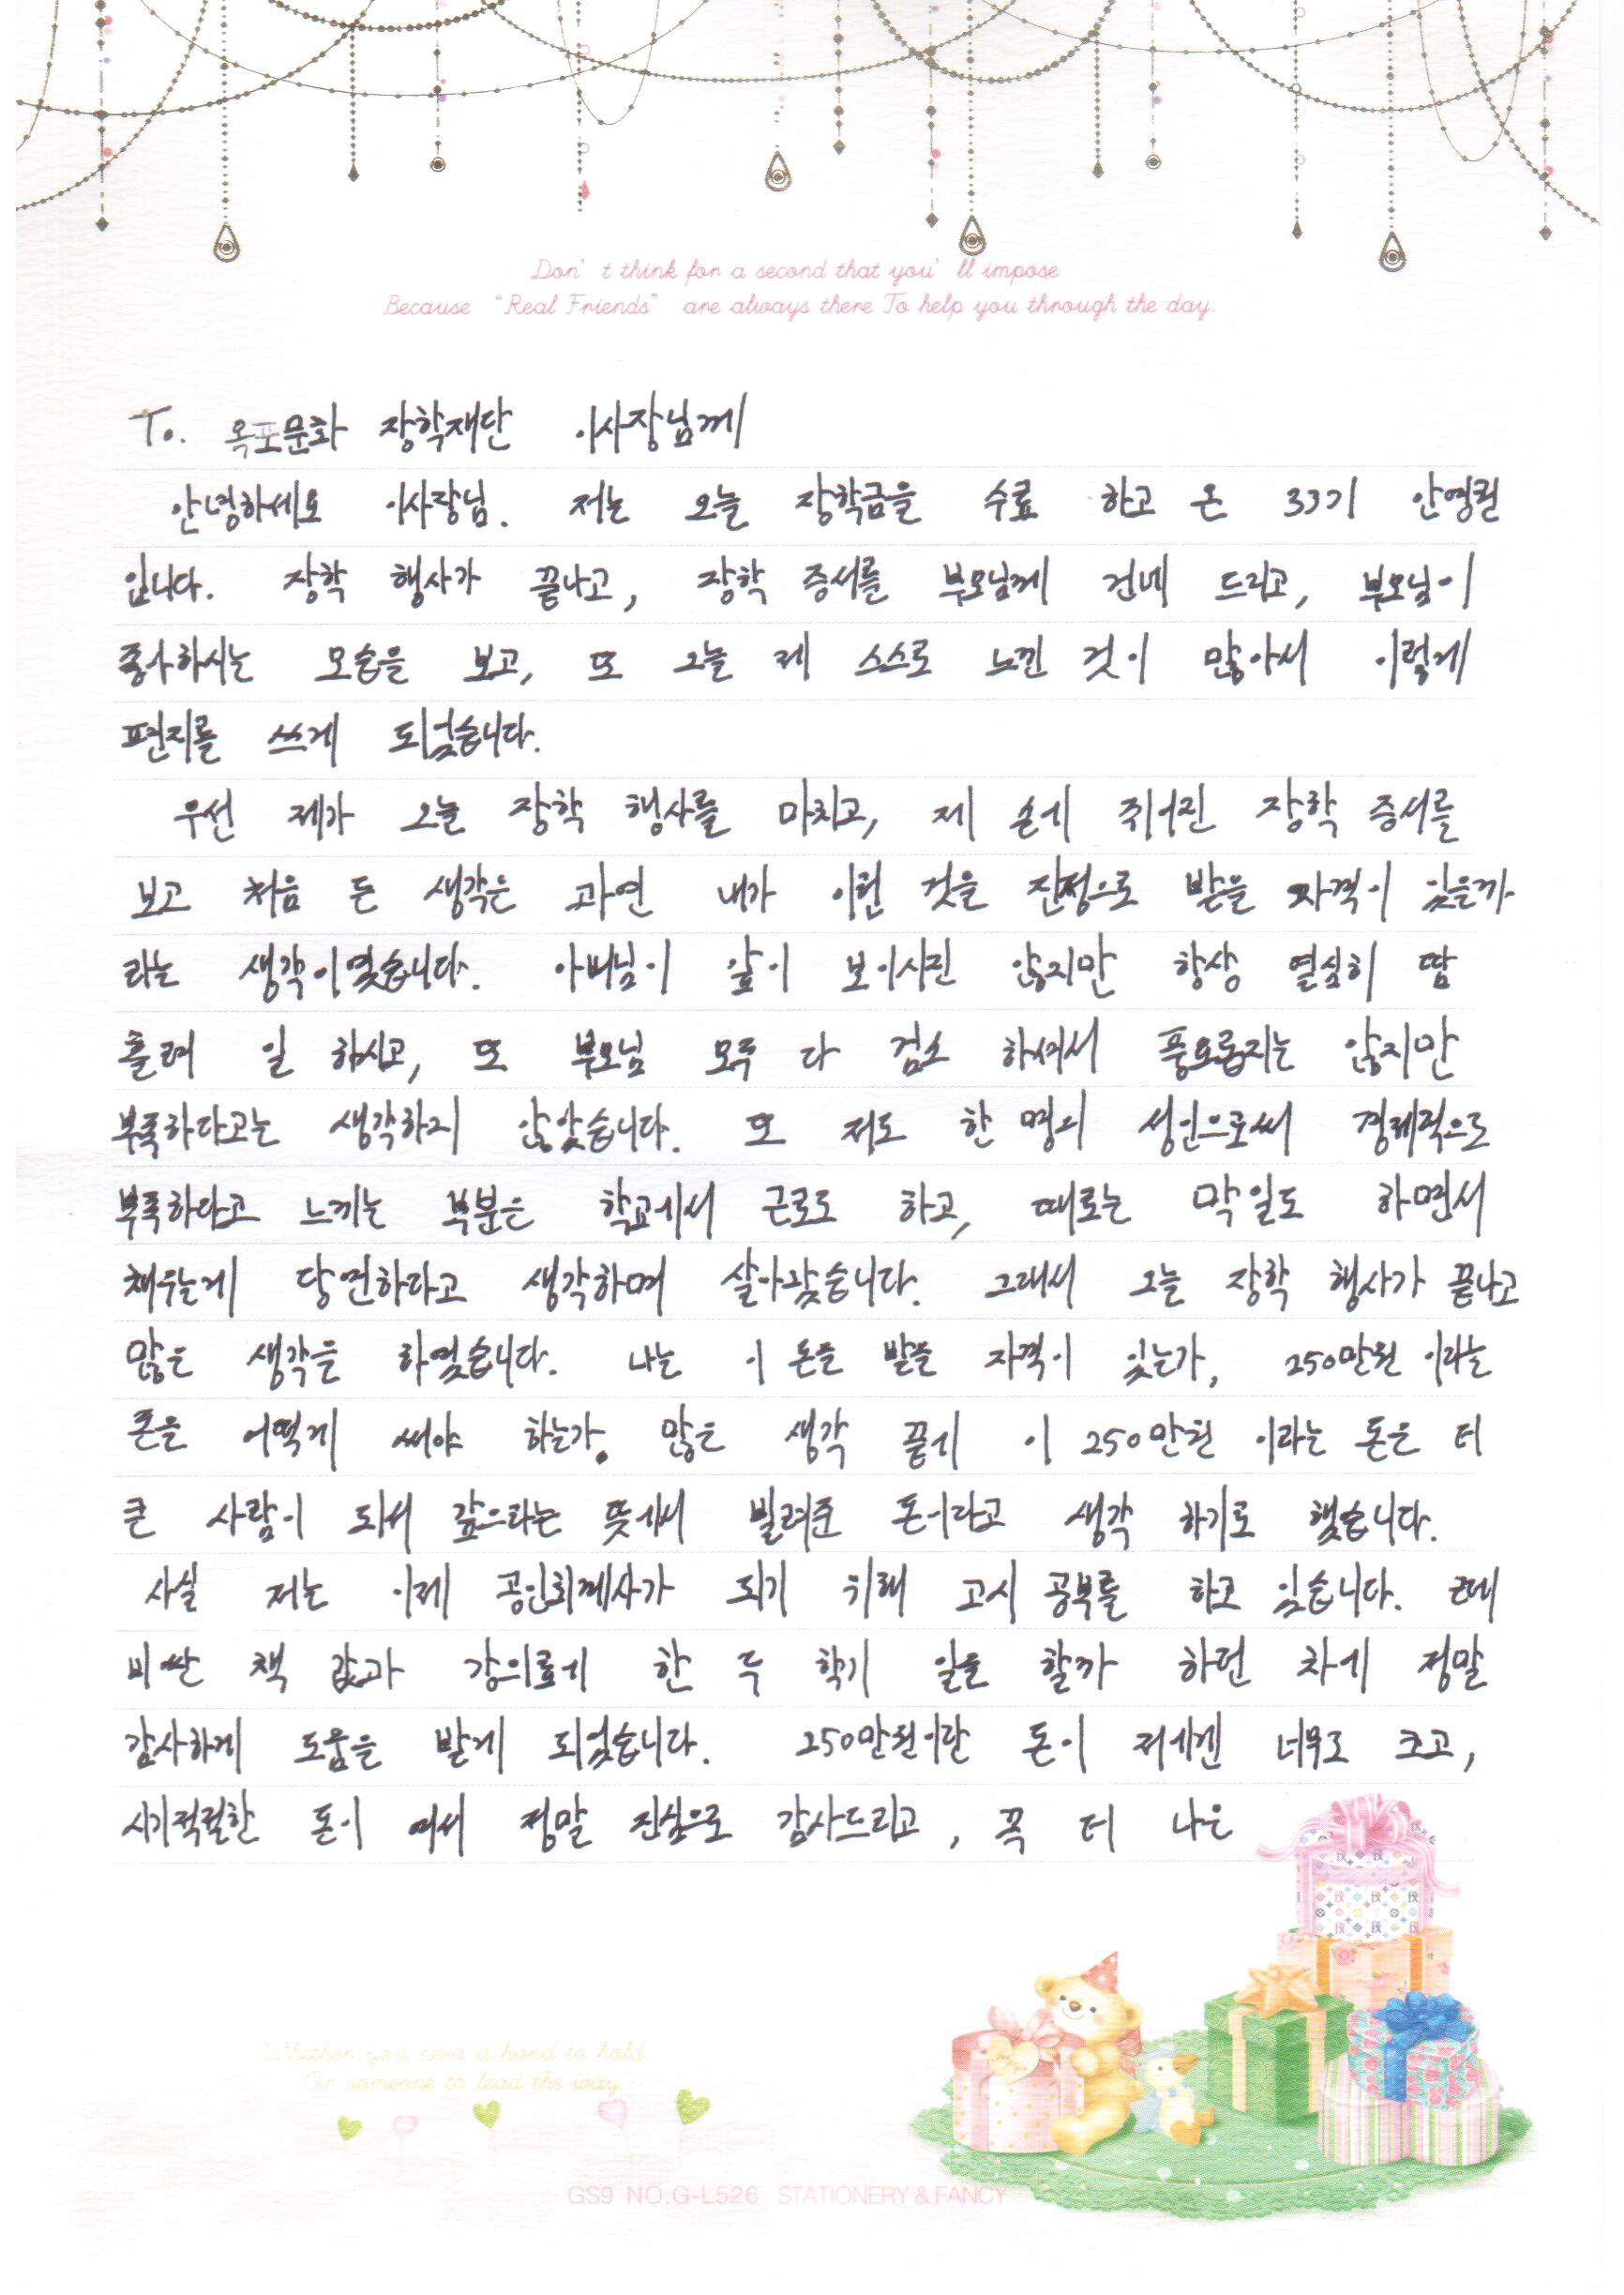 Don't think for a second that you'll impose
Because "Real Friends" are always there To help you through the day.
To. 옥포문화 장학재단 이사장님께
안녕하세요 이사장님. 저는 오늘 장학금을 수료 하고 온 33기 안영권
입니다. 장학 행사가 끝나고, 장학 증서를 부모님께 건네 드리고, 부모님이
좋아하시는 모습을 보고, 또 오늘 제 스스로 느낀 것이 많아서 이렇게
편지를 쓰게 되었습니다.
우선 제가 오늘 장학 행사를 마치고, 제 손에 쥐어진 장학 증서를
보고 처음 든 생각은 과연 내가 이런 것을 진정으로 받을 자격이 있을까
라는 생각이였습니다. 아버님이 앞이 보이시진 않지만 항상 열심히 땀
흘려 일 하시고, 또 부모님 모두 다 검소 하셔서 풍요롭지는 않지만
부족하다고는 생각하지 않았습니다. 또 저도 한 명의 성인으로써 경제적으로
부족하다고 느끼는 부분은 학교에서 근로도 하고, 때로는 막일도 하면서
채우는게 당연하다고 생각하며 살아왔습니다. 그래서 오늘 장학 행사가 끝나고
많은 생각을 하였습니다. 나는 이 돈을 받을 자격이 있는가, 250만원 이라는
돈을 어떻게 써야 하는가. 많은 생각 끝에 이 250만원 이라는 돈은 더
큰 사람이 되서 갚으라는 뜻에서 빌려준 돈이라고 생각 하기로 했습니다.
사실 저는 이제 공인회계사가 되기 위해 고시 공부를 하고 있습니다. 근데
비싼 책 값과 강의료에 한 두 학기 일을 할까 하던 차에 정말
감사하게 도움을 받게 되었습니다. 250만원이란 돈이 저에겐 너무도 크고,
시기적절한 돈이 여서 정말 진심으로 감사드리고, 꼭 더 나은
Whether you need a hand to hold
Or someone to lead the way
GS9 NO.G-L526 STATIONERY & FANCY